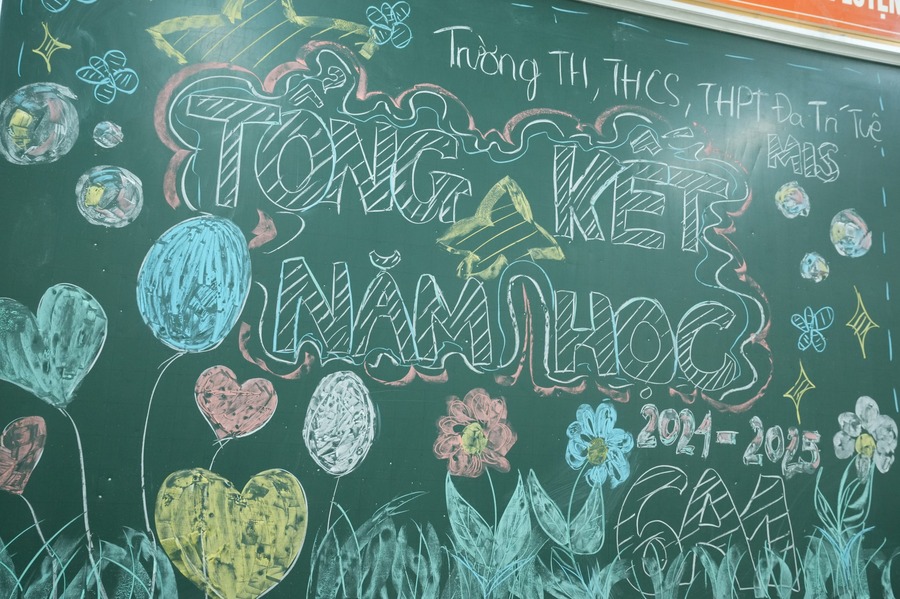 Trường TH, THCS, THPT Đa Trí Tuệ
MIS
TỔNG KẾT
NĂM HỌC
2024 - 2025
6A1